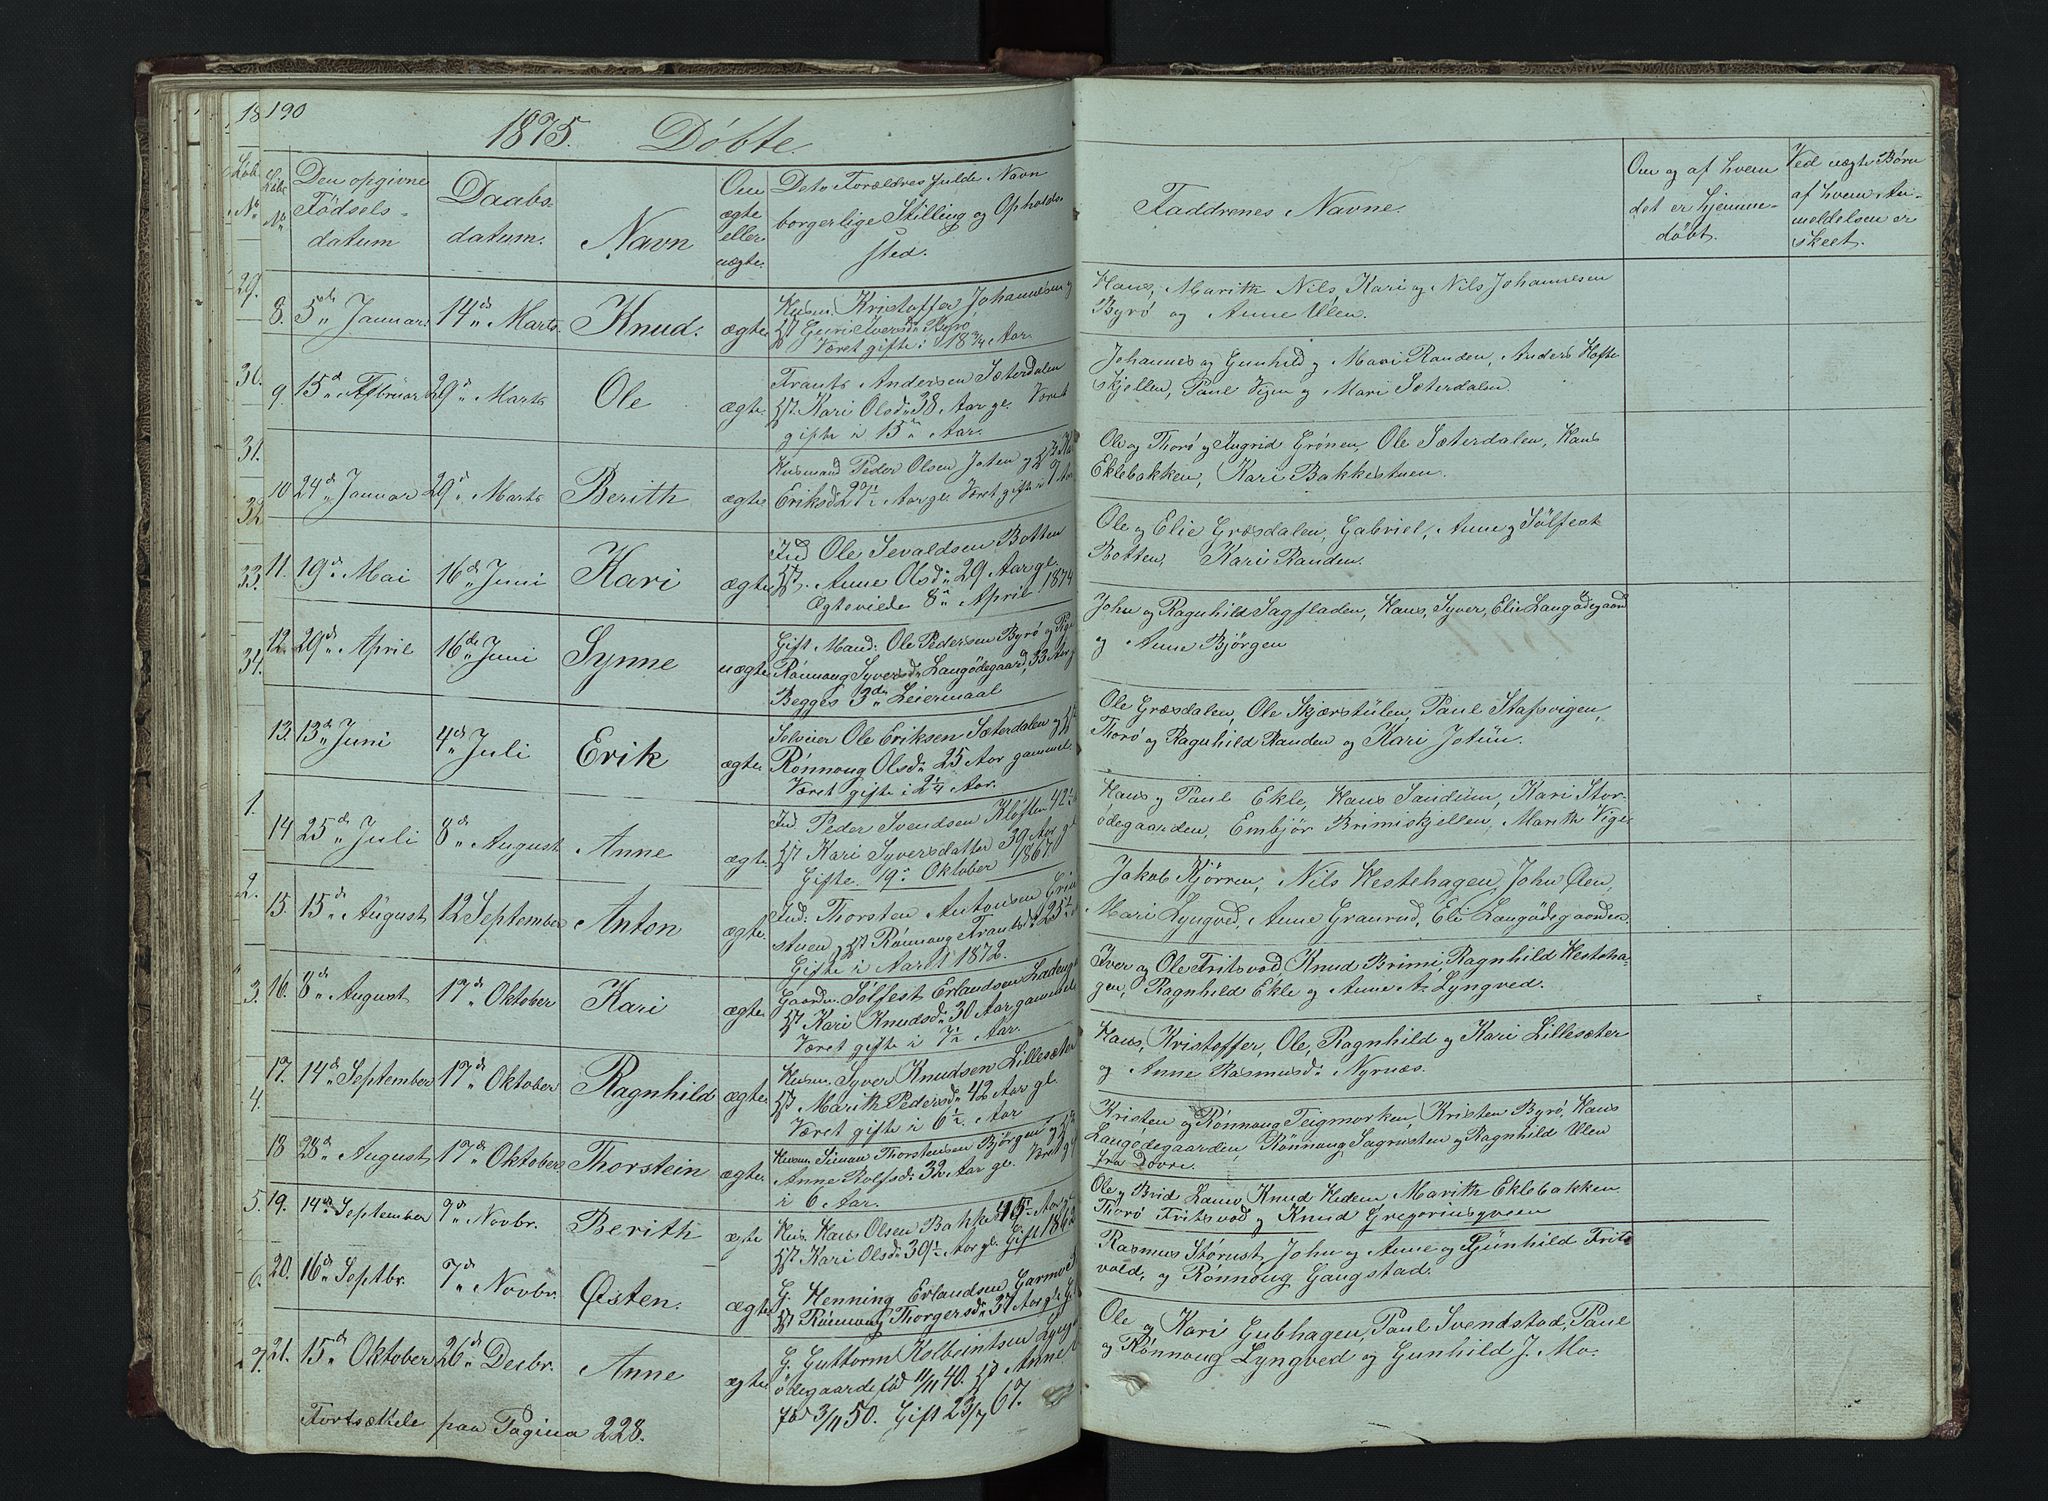 18 190
1875. Döbte.
Löb. No
Löbe No
Den opgivne Födsels-datum
Daabs-datum.
Navn
Om ægte eller uægte.
Deto Forældres fulde Navn borgerlige Stilling og Opholds-sted.
Faddrenes Navne.
Om og af hvem det er hjemme-döbt.
Ved uægte Börn af hvem An-meldelsen er skeet.
29.
8. 5d" Januar. 14d" Marts. Knud. ægte
Husm. Kristoffer Johannesen og
Hst Guri Iversd. Byrö
Været gifte i 18 3/4 Aar.
Hans, Marith Nils, Kari og Nils Johannesen
Byrö og Anne Ulen.
30.
9. 15d Februar 29d" Marts Ole ægte.
Frants Andersen Sæterdalen
Hst. Kari Olsd. 38 Aar gl. Været
gifte i 15 Aar.
Johannes og Gunhild og Mari Randen, Anders Hofte-
skjellen, Paul Vigen og Mari Sæterdalen.
31.
10 24d" Januar 29d" Marts Berith ægte.
Husmand Peder Olsen Joten og Hst
Eriksd. Aar gl. Været gifte i 9 Aar
Ole og Thorö og Ingrid Grönen, Ole Sæterdalen, Hans
Eklebakken, Kari Bakkestuen.
32.
33.
11. 19d" Mai 16d" Juni Kari ægte
Ind Ole Sevaldsen Botten
Hst. Anne Olsd. 29 Aar gl.
Ægteviede 8 April 1874
Ole og Elie Græsdalen, Gabriel, Anne og Sölfest
Botten, Kari Randen.
34.
12. 29d" April 16d" Juni Synne uægte
Gift Mand: Ole Pedersen Byrö og Pige
Rönnoug Syversd. Langödegaard, 33 Aar gl
Begges 3d Leiermaal
John og Ragnhild Sagfladen, Hans, Syver, Elie Langödegaard
og Anne Björgen
13. 13d" Juni 4d" Juli Erik ægte.
Selveier Ole Eriksen Sæterdalen og Hst
Rönnoug Olsd. 25 Aar gammel.
Været gifte i 2 1/4 Aar.
Ole Græsdalen, Ole Skjærstülen, Paul Stafsvigen,
Thorö og Ragnhild Randen og Kari Jotün.
1.
14 25d" Juli 8d" August Anne ægte
Ind. Peder Svendsen Kloften 42 1/2
Hst Kari Syversdatter 39 Aar gl
Gifte. 19 Oktober 1867.
Hans og Paul Ekle, Hans Sandüm, Kari Stor-
ödegaarden, Embjör Brimiskjellen, Marith Vige
2.
15. 15d" August 12 September Anton ægte.
Ind: Thorsten Antonsen
stuen og Hst Rönnoug Frantsd. 25 1/2
Gifte i Aaret 1872.
Jakob Kjörren, Nils Hestehagen, John Öien,
Mari Lyngved, Anne Granrud, Eli Langödegaarden.
3.
16. 8d" August 17d" Oktober Kari ægte.
Gaardm. Sölfest Erlandsen
Hst Kari Knudsd. 30 Aar gammel
Været gifte i 7 1/2 Aar.
Iver og Ole Fritsvod, Knud Brimi, Ragnhild Hesteha-
gen, Ragnhild Ekle og Anne A. Lyngved.
17. 14d" September 17d" Oktober Ragnhild ægte.
Husm. Syver Knudsen Lillesæter
Hst Marith Pedersd. 42 Aar gl.
Været gifte i 6 1/2 Aar
Hans, Kristoffer, Ole, Ragnhild og Kari Lillesæter
og Anne Rasmusd. Nyrnæs.
4.
18 28d" August 17d" Oktober Thorstein ægte
Husm. Simon Thorstensen Björgen og Hst
Anne Rolfsd. 32 Aar gl. Været g
i 6 Aar.
Kristen og Rönnoug Teigmorken, Kristen Byrö, Hans
Langedegaarden, Rönnoug og Ragnhild Ulen
fra Dovre.
5.
19. 14d September 9d" Novbr. Berith ægte
Hus. Hans Olsen Bakke 45 Aar gl
Hst Kari Olsd. 39 1/2 Aar gl. Gift 1862
Ole og Brid Laue, Knud Hedem Marith Eklebakken
Thorö Fritsvod og Knud Gregoriusgveen
6.
20. 16d" Septbr. 7d" Novbr. Østen. ægte
G. Henning Erlandsen Garmo
Hst Rönnoug Thorgersd. 37 Aar gl.
Rasmus Störust, John og Anne og Günhild Frits
vold, og Rönnoug Gangstad.
7.
21. 15d" Oktober 26d" Desbr. Anne ægte
G. Guttorm Kolbeintsen Lyng
ödegaard född 11/11 40. Hst Anne
föd 3/11 50. Gift 23/7 67.
Ole og Kari Gubhagen, Paul Svendstad, Paul
og Rönnoug Lyngved og Gunhild J. Mo.
Fortsættele paa Pagina 228.